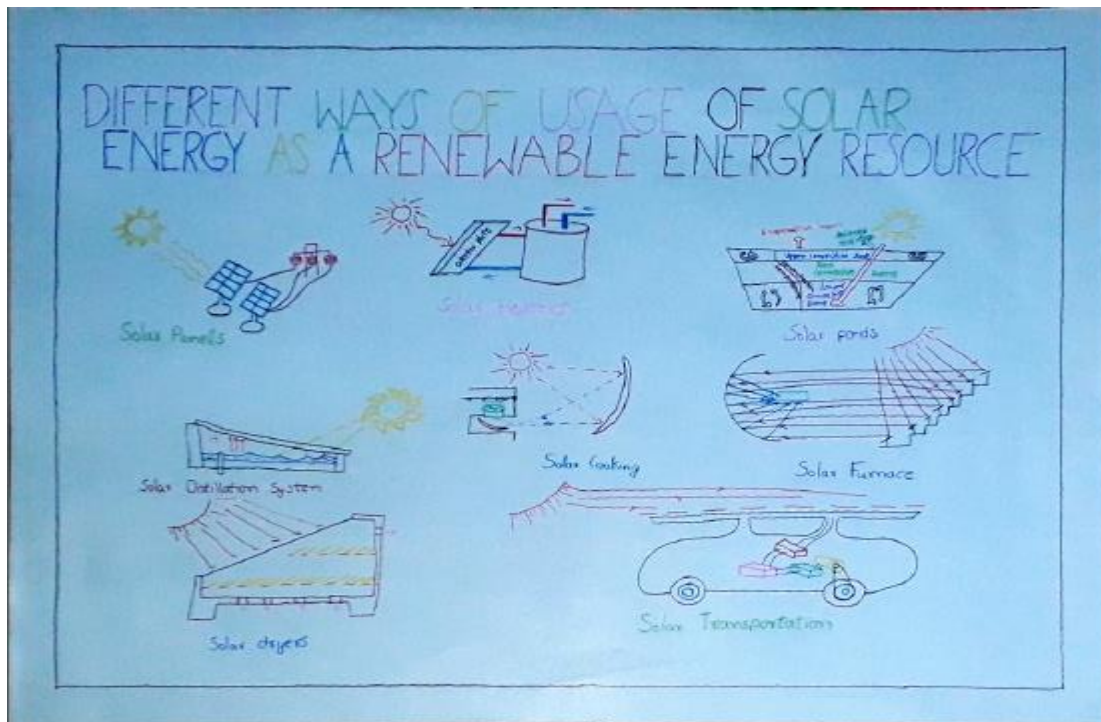 DIFFERENT WAYS OF USAGE OF SOLAR
ENERGY AS A RENEWABLE ENERGY RESOURCE
Solar Panels
Solar Heaters
Solar ponds
Solar Distillation System
Solar Cooking
Solar Furnace
Solar dryers
Solar Transportation